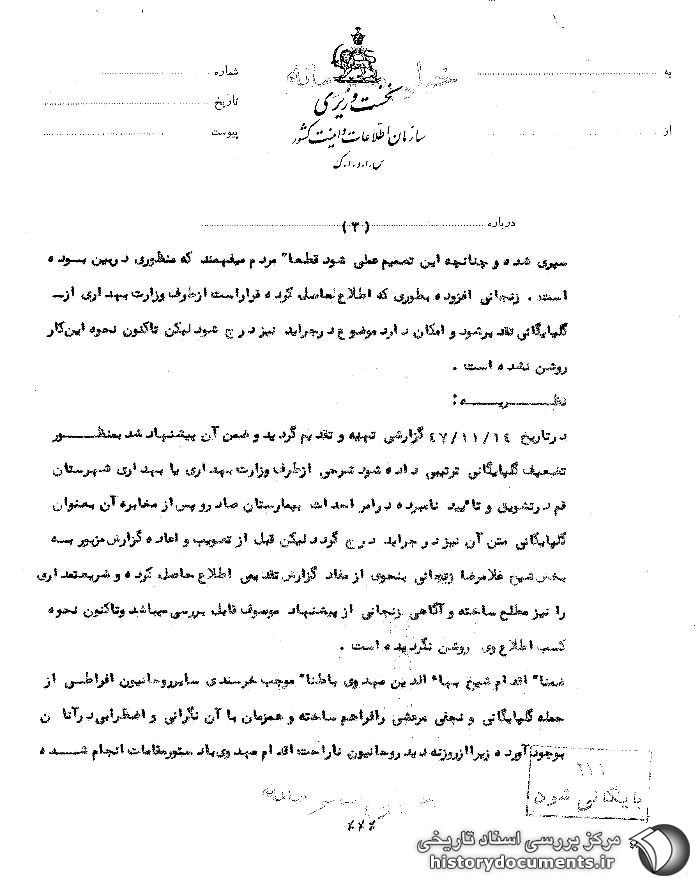 به
شماره
نخست وزیری
تاریخ
سازمان اطلاعات و امنیت کشور
از
پیوست
س.ا.و.ا.ک
درباره (۳)
سپری شده و چنانچه این تصمیم عملی شود قطعا" مردم میفهمند که منظوری دربین بوده
است . زنجانی افزوده بطوری که اطلاع حاصل کرده قراراست ازطرف وزارت بهداری از
گلپایگانی تقدیرشود و امکان دارد موضوع درجراید نیز درج شود لیکن تاکنون نحوه این‌کار
روشن نشده است .
نظریه :
درتاریخ ۴۷/۱۱/۱۴ گزارشی تهیه و تقدیم گردید و ضمن آن پیشنهاد شد بمنظور
تضعیف گلپایگانی ترتیبی داده شود شرحی ازطرف وزارت بهداری یا بهداری شهرستان
قم درتشویق و تایید نامبرده درامر احداث بیمارستان صادر و پس از مخابره آن بعنوان
گلپایگانی متن آن نیز در جراید درج گردد لیکن قبل از تصویب و اعاده گزارش مزبور به
بخش شیخ غلامرضا زنجانی بنحوی از مفاد گزارش تقدیمی اطلاع حاصل کرده و شریعتمداری
را نیز مطلع ساخته و آگاهی زنجانی از پیشنهاد موصوف قابل بررسی میباشد وتاکنون نحوه
کسب اطلاع وی روشن نگردیده است .
ضمنا" اقدام شیخ بهاء الدین مهدوی باطنا" موجب خرسندی سایرروحانیون افراطی از
جمله گلپایگانی و نجفی مرعشی رافراهم ساخته و همزمان با آن نگرانی و اضطرابی درآنان
بوجود آورده زیرا ازروزنه دید روحانیون ناراحت اقدام مهدوی بادستورمقامات انجام شده
۶۱۱
بایگانی شود
***
مرکز بررسی اسناد تاریخی
historydocuments.ir